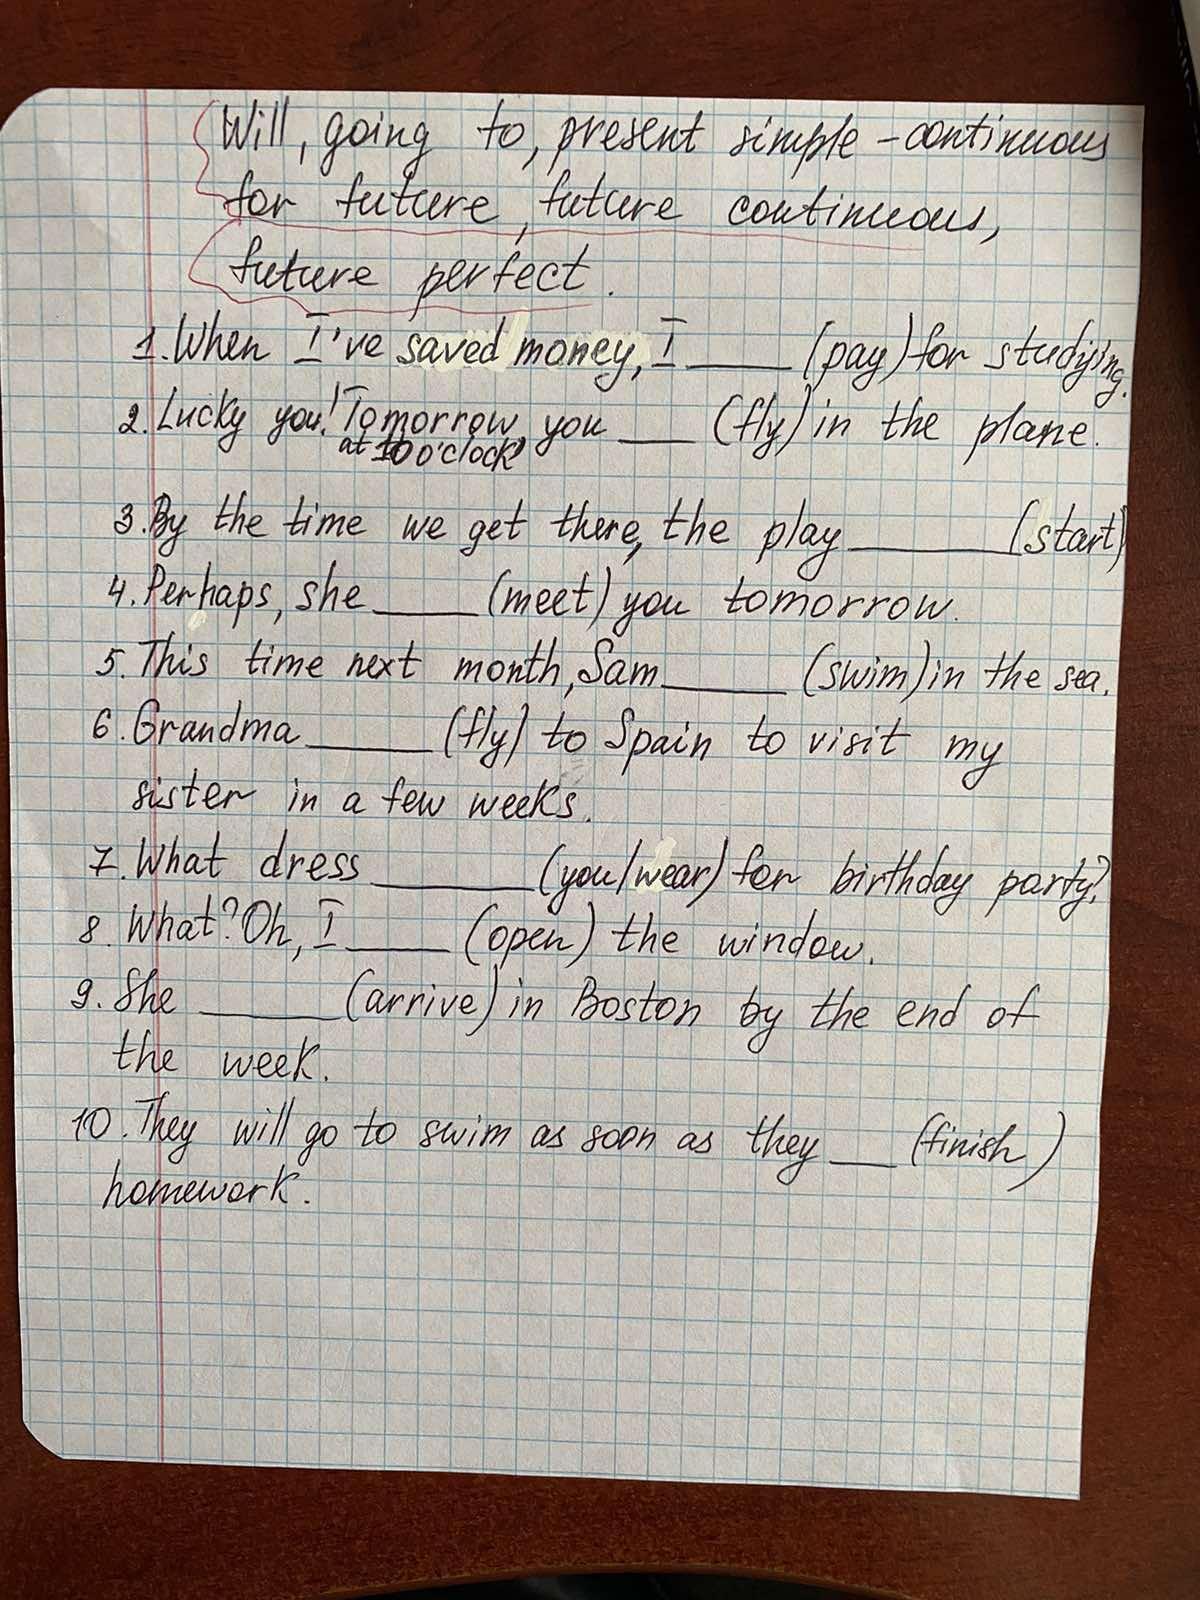 Will, going to, present simple - continuous
for future, future continuous,
future perfect.
1. When I've saved money, I ____ (pay) for studying.
2. Lucky you! Tomorrow you ___ (fly) in the plane.
at 10 o'clock
3. By the time we get there, the play ______ (start)
4. Perhaps, she ____ (meet) you tomorrow.
5. This time next month, Sam _____ (swim) in the sea.
6. Grandma _____ (fly) to Spain to visit my
sister in a few weeks.
7. What dress ______ (you/wear) for birthday party?
8. What? Oh, I ____ (open) the window.
9. She _____ (arrive) in Boston by the end of
the week.
10. They will go to swim as soon as they ___ (finish)
homework.